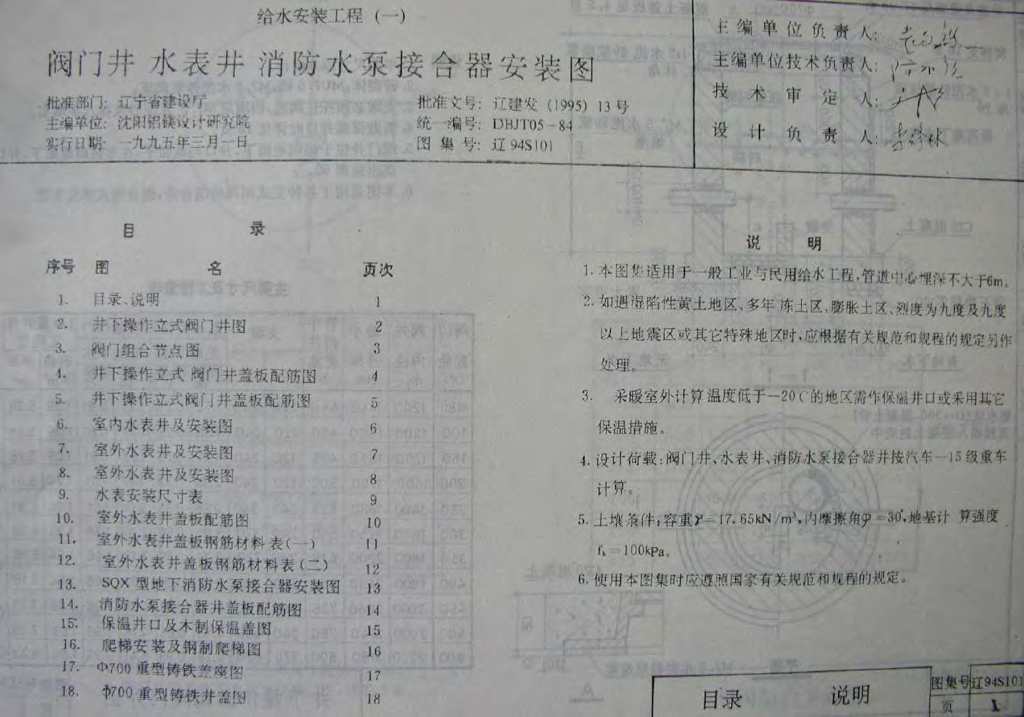 给水安装工程 (一)
阀门井 水表井 消防水泵接合器安装图
批准部门: 辽宁省建设厅
主编单位: 沈阳铝镁设计研究院
实行日期: 一九九五年三月一日
批准文号: 辽建发 (1995) 13号
统一编号: DBJT05-84
图集号: 辽94S101
主编单位负责人:
主编单位技术负责人:
技术审定人:
设计负责人:
目 录
序号 图 名 页次
1. 目录、说明 1
2. 井下操作立式阀门井图 2
3. 阀门组合节点图 3
4. 井下操作立式 阀门井盖板配筋图 4
5. 井下操作立式阀门井盖板配筋图 5
6. 室内水表井及安装图 6
7. 室外水表井及安装图 7
8. 室外水表井及安装图 8
9. 水表安装尺寸表 9
10. 室外水表井盖板配筋图 10
11. 室外水表井盖板钢筋材料表(一) 11
12. 室外水表井盖板钢筋材料表(二) 12
13. SQX 型地下消防水泵接合器安装图 13
14. 消防水泵接合器井盖板配筋图 14
15. 保温井口及木制保温盖图 15
16. 爬梯安装及钢制爬梯图 16
17. Φ700 重型铸铁盖座图 17
18. Φ700 重型铸铁井盖图 18
说 明
1. 本图集适用于一般工业与民用给水工程,管道中心埋深不大于6m。
2. 如遇湿陷性黄土地区、多年冻土区、膨胀土区、烈度为九度及九度
以上地震区或其它特殊地区时,应根据有关规范和规程的规定另作
处理。
3. 采暖室外计算温度低于-20℃的地区需作保温井口或采用其它
保温措施。
4. 设计荷载:阀门井、水表井、消防水泵接合器井按汽车-15级重车
计算。
5. 土壤条件:容重γ=17.65kN/m³,内摩擦角φ=30°,地基计算强度
fk=100kPa。
6. 使用本图集时应遵照国家有关规范和规程的规定。
目录 说明
图集号 辽94S101
页 1